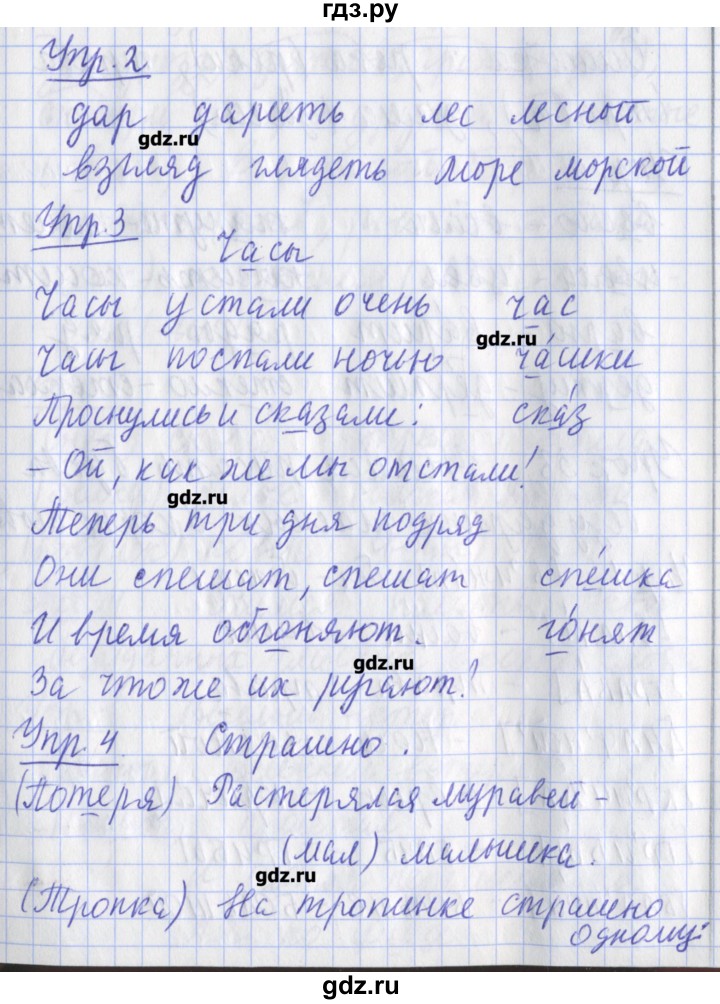 гдз.ру
Упр. 2
дар дарить лес лесной
gdz.ru
взгляд глядеть море морской
Упр. 3
Часы
Часы устали очень час
gdz.ru
Часы поспали ночью ча́сики
Проснулись и сказали: ска́з
- Ой, как же мы отстали!
gdz.ru
Теперь три дня подряд
Они спешат, спешат спе́шка
И время обгоняют. го́нят
gdz.ru
За что же их ругают?
Упр. 4 Страшно.
(Потеря) Растерялся муравей -
(мал) малышка.
gdz.ru
(Тропка) На тропинке страшно
одному:
gdz.ru